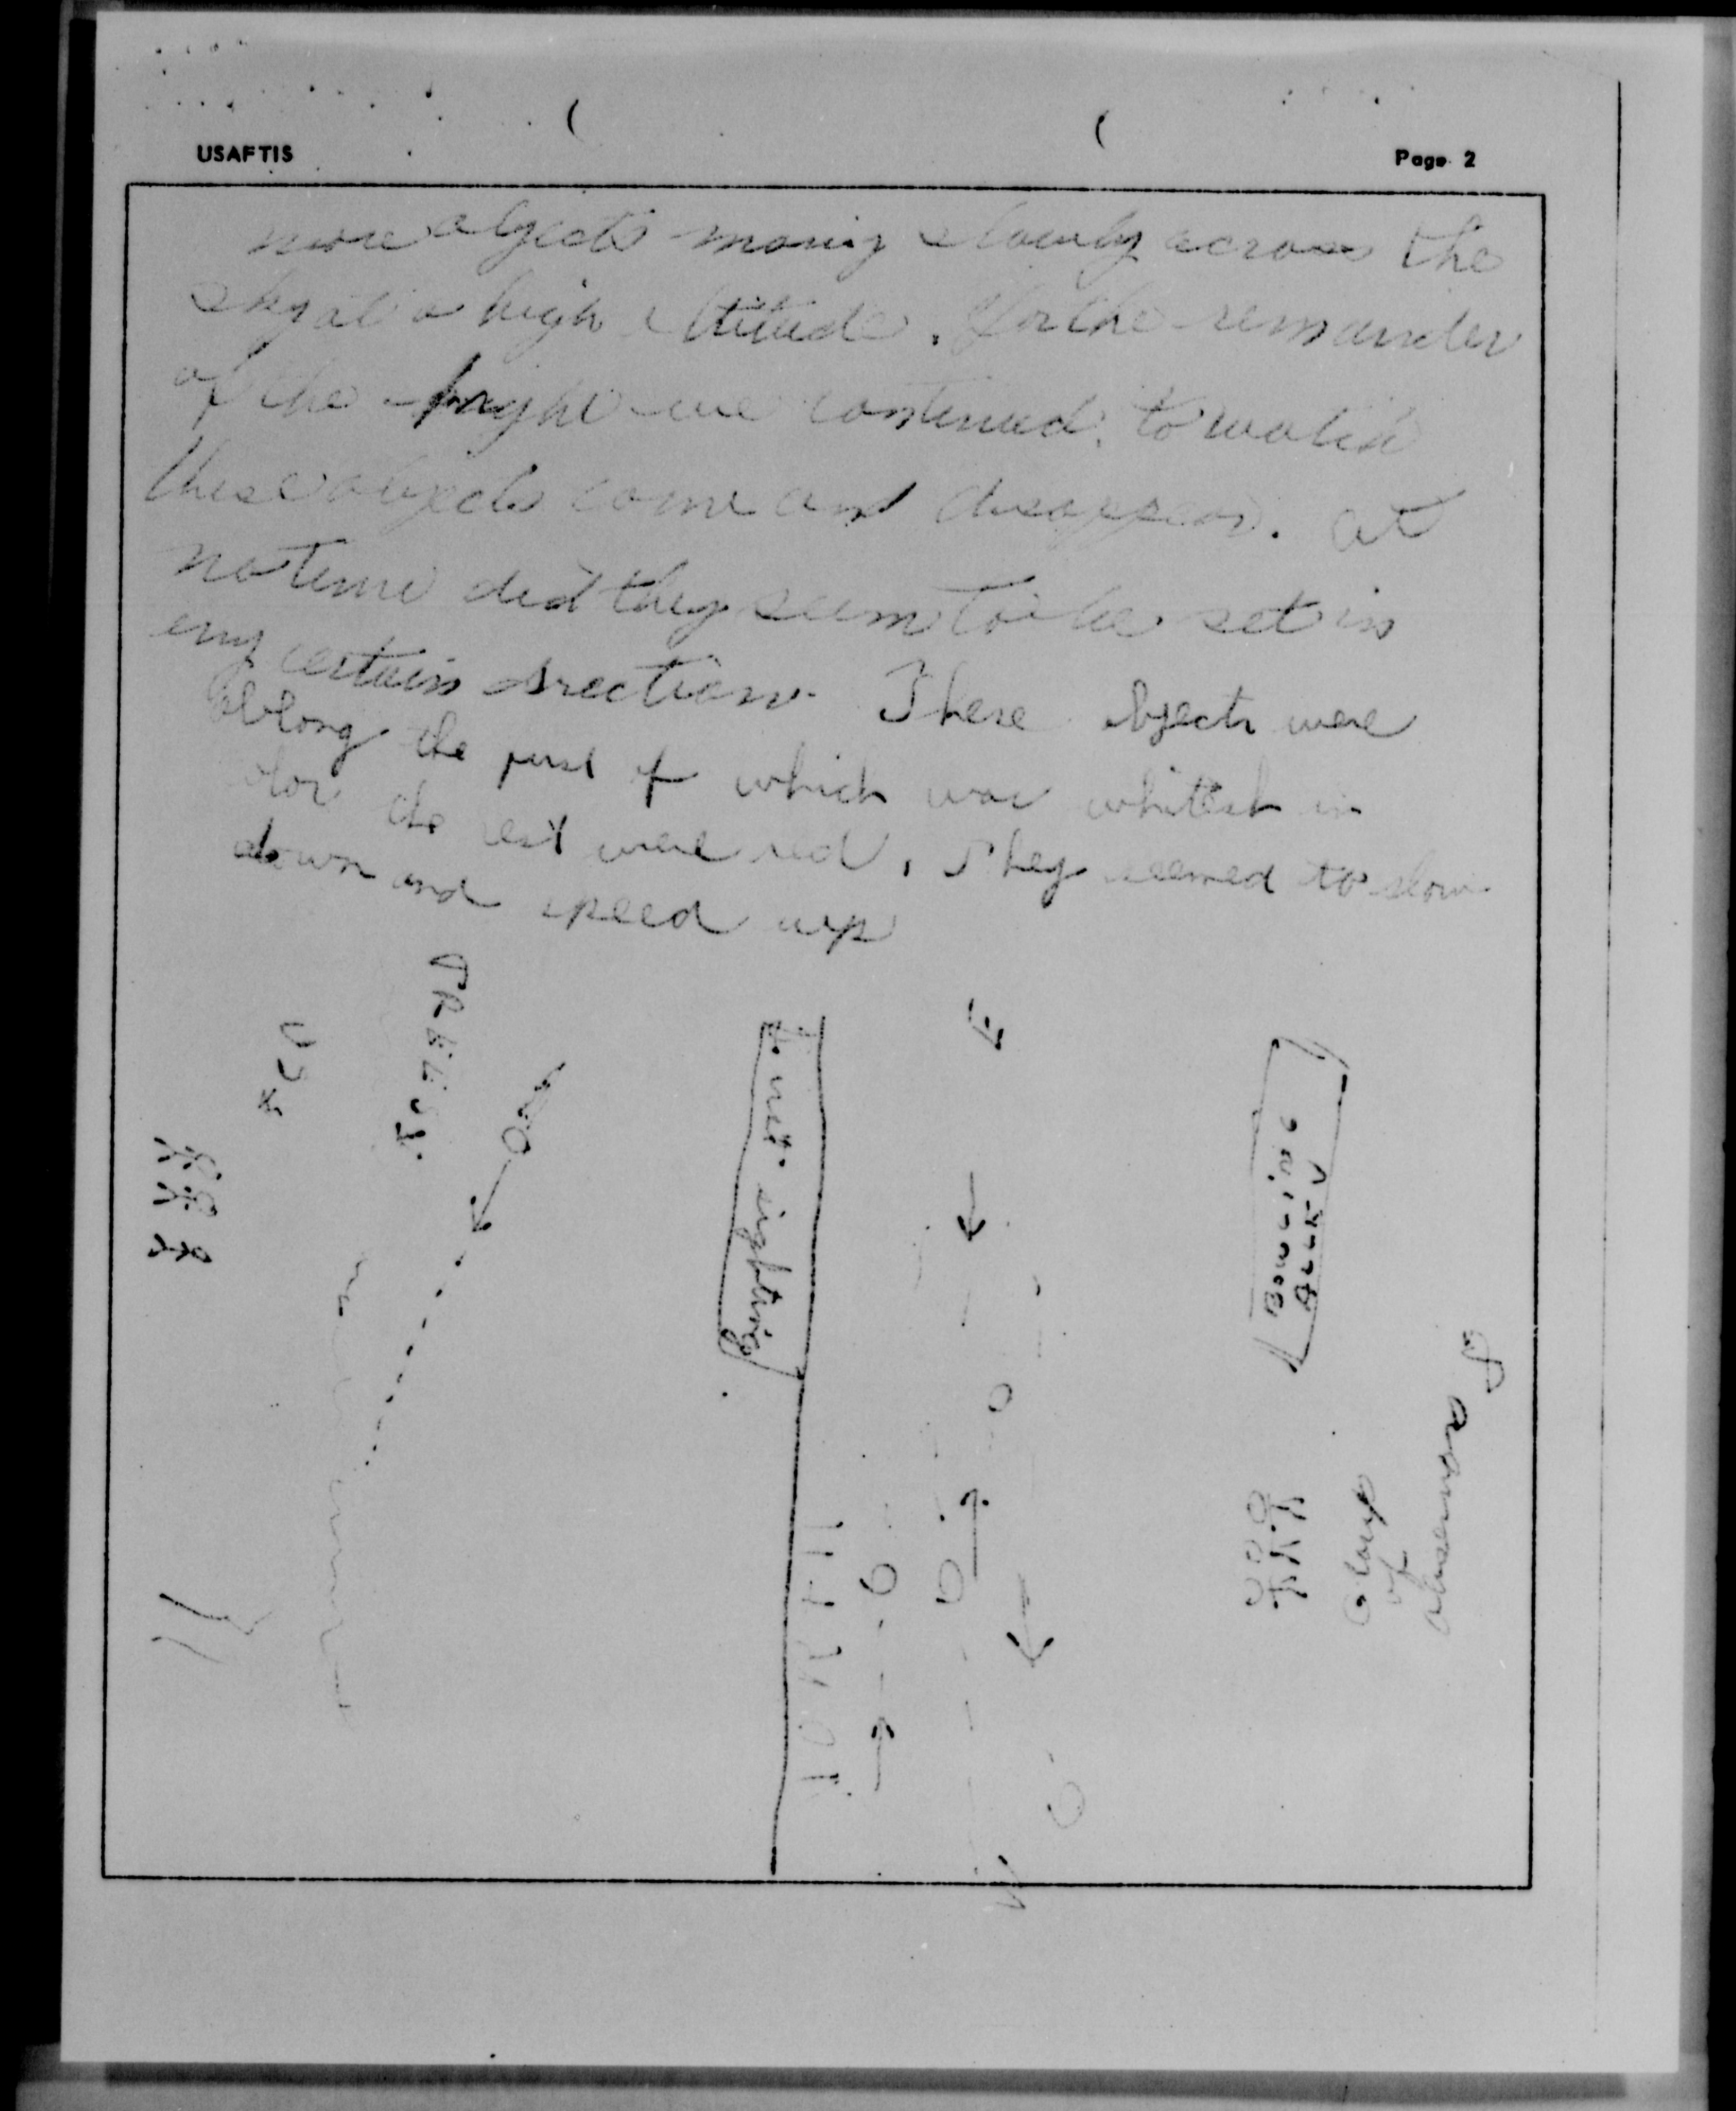 USAFTIS
Page 2
more objects moving slowly across the
sky at a high altitude. For the remainder
of the night we continued to watch
these objects come and disappear. at
no time did they seem to be set in
eny certain direction. These objects were
oblong the first of which was whitish in
color the rest were red, They seemed to slow
down and speed up
TREES
1st sighting
E
BOWLING
ALLEY
Group
of
observers